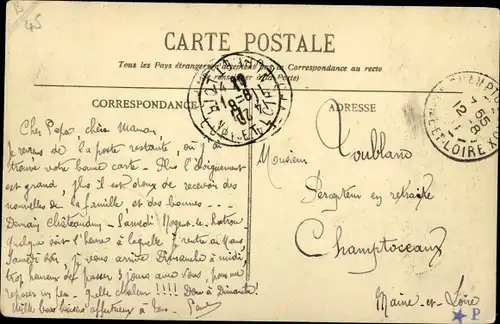 B
45
CARTE POSTALE
Tous les Pays étrangers la Correspondance au recto
renseigner de Poste)
CORRESPONDANCE
ADRESSE
Cher Papa, chère Maman,
Je reviens de la poste restante, où j'ai
trouvé votre bonne carte - Plus l'éloignement
est grand, plus il est doux de recevoir des
nouvelles de la famille, et des bonnes ...
Demain Châteaudun - Samedi Nogent-le-Rotrou
Quelque soit l'heure à laquelle je rentre à
Samedi soir, Je vous arrive Dimanche à midi,
trop heureux de passer 3 jours avec vous, pour me
reposer un peu - Quelle chaleur !!!! Donc à Dimanche
Mille bons baisers affectueux à tous.
Monsieur Roublano
Percepteur en retraite
Champtoceaux
Maine-et-Loire
ET-LOIRE
P